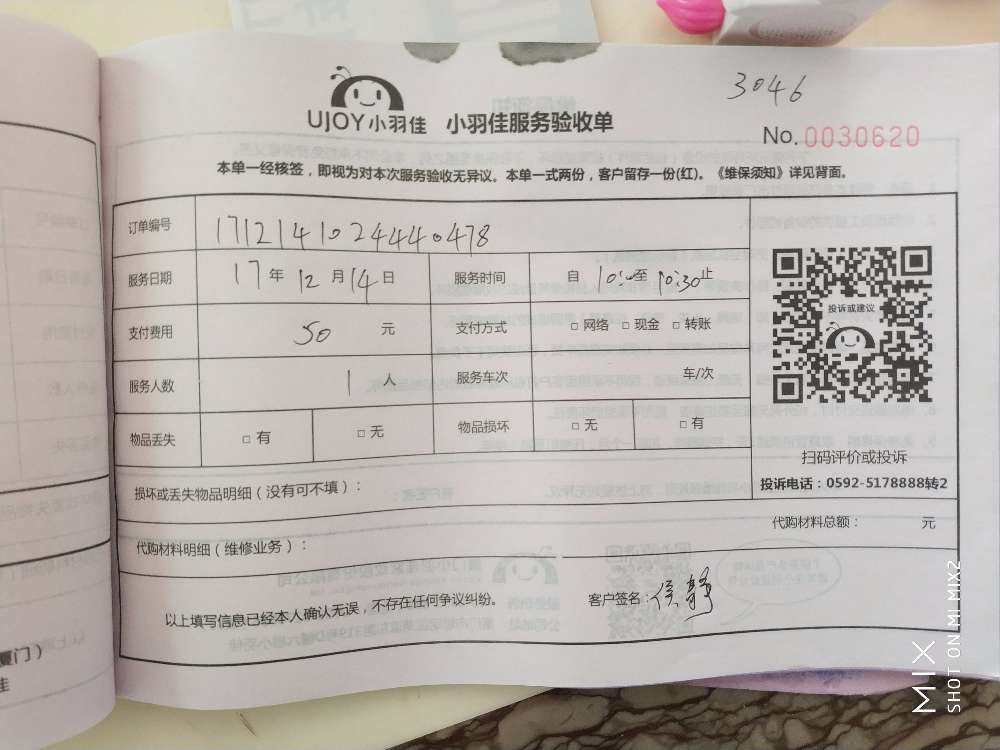 3046
UJOY小羽佳 小羽佳服务验收单
No.0030620
本单一经核签，即视为对本次服务验收无异议。本单一式两份，客户留存一份(红)。《维保须知》详见背面。
订单编号 1712141024440478
服务日期 17年12月14日 服务时间 自10:00至10:30止
支付费用 50 元 支付方式 □网络 □现金 □转账
服务人数 1 人 服务车次 车/次
物品丢失 □有 □无 物品损坏 □无 □有
投诉或建议
扫码评价或投诉
投诉电话：0592-5178888转2
损坏或丢失物品明细（没有可不填）：
代购材料明细（维修业务）：
代购材料总额： 元
以上填写信息已经本人确认无误，不存在任何争议纠纷。
客户签名：侯静
厦门）
佳
MIX
SHOT ON MI MIX2